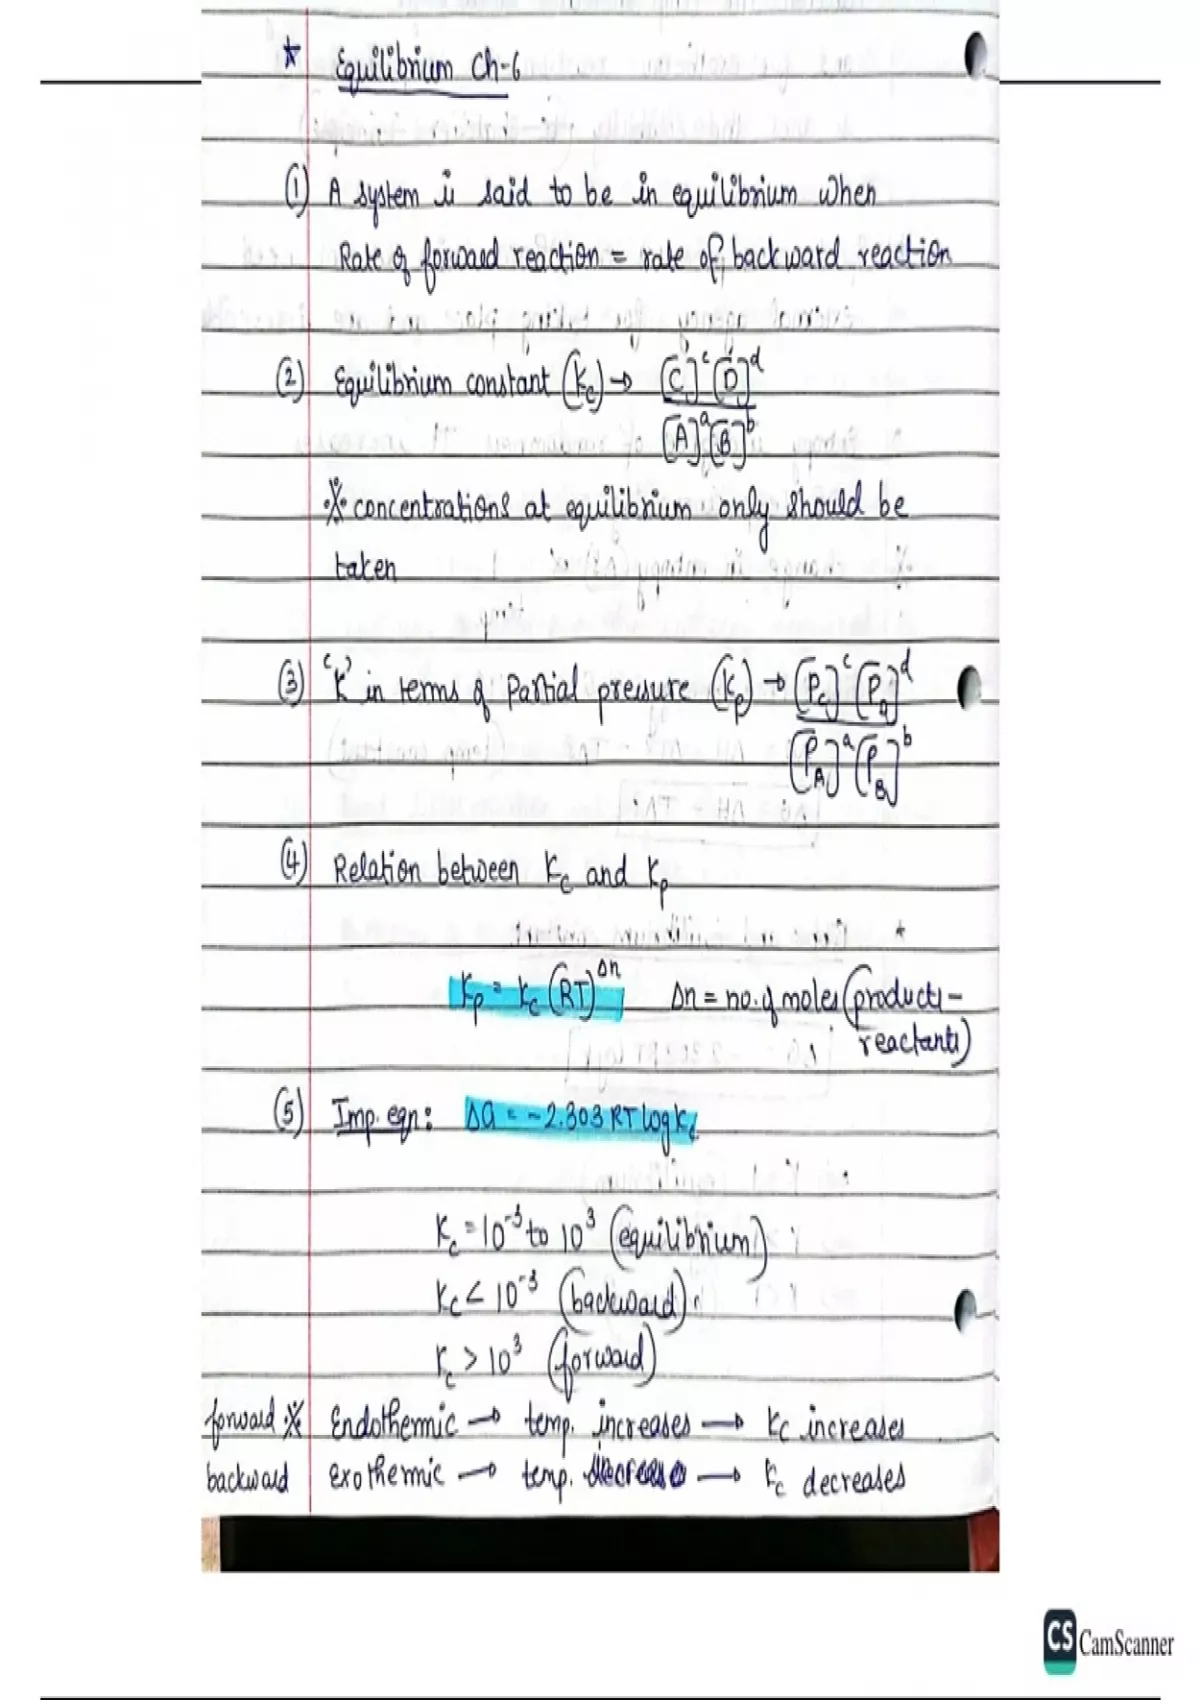 * Equilibrium Ch-6
(1) A system is said to be in equilibrium when
Rate of forward reaction = rate of backward reaction
(2) Equilibrium constant (Kc) → [C]^c [D]^d
[A]^a [B]^b
※ concentrations at equilibrium only should be
taken
(3) 'K' in terms of Partial pressure (Kp) → [P_C]^c [P_D]^d
[P_A]^a [P_B]^b
(4) Relation between Kc and Kp
Kp = Kc (RT)^Δn Δn = no. of moles (products -
reactants)
(5) Imp. eqn: ΔG = -2.303 RT log Kc
Kc = 10^-3 to 10^3 (equilibrium)
Kc < 10^-3 (backward)
Kc > 10^3 (forward)
forward ※ Endothermic → temp. increases → Kc increases
backward Exothermic → temp. → Kc decreases
CS CamScanner